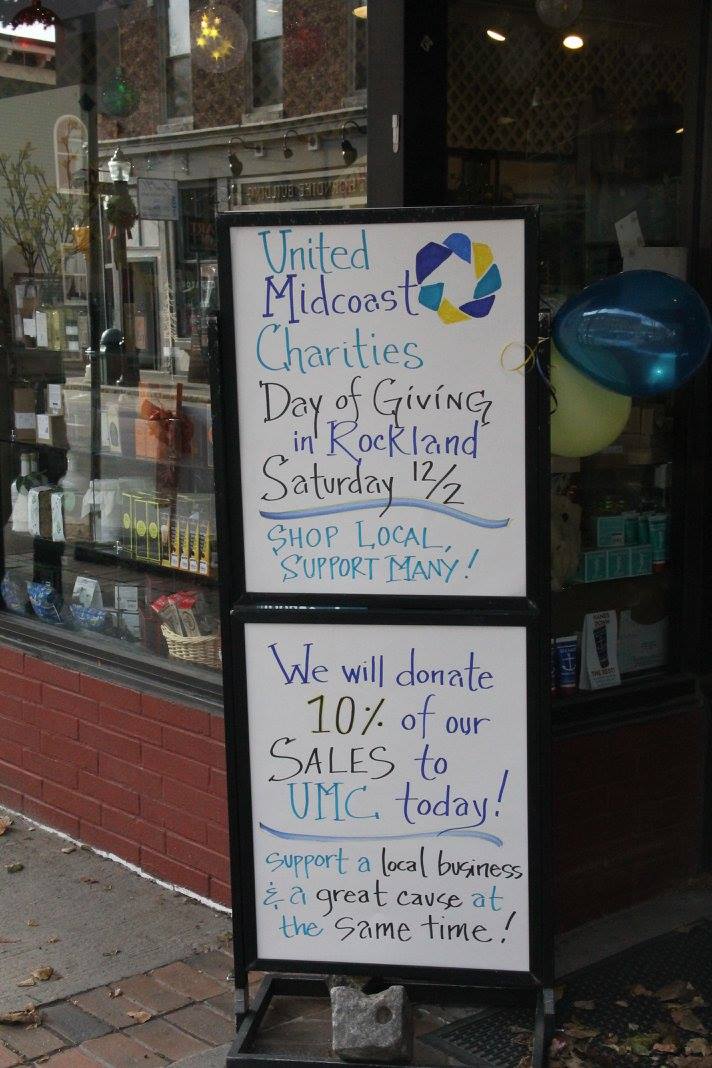 United
Midcoast
Charities
Day of Giving
in Rockland
Saturday 12/2
SHOP LOCAL,
SUPPORT MANY!
We will donate
10% of our
SALES to
UMC today!
support a local business
& a great cause at
the same time!
HANDS
DOWN
THE BEST!